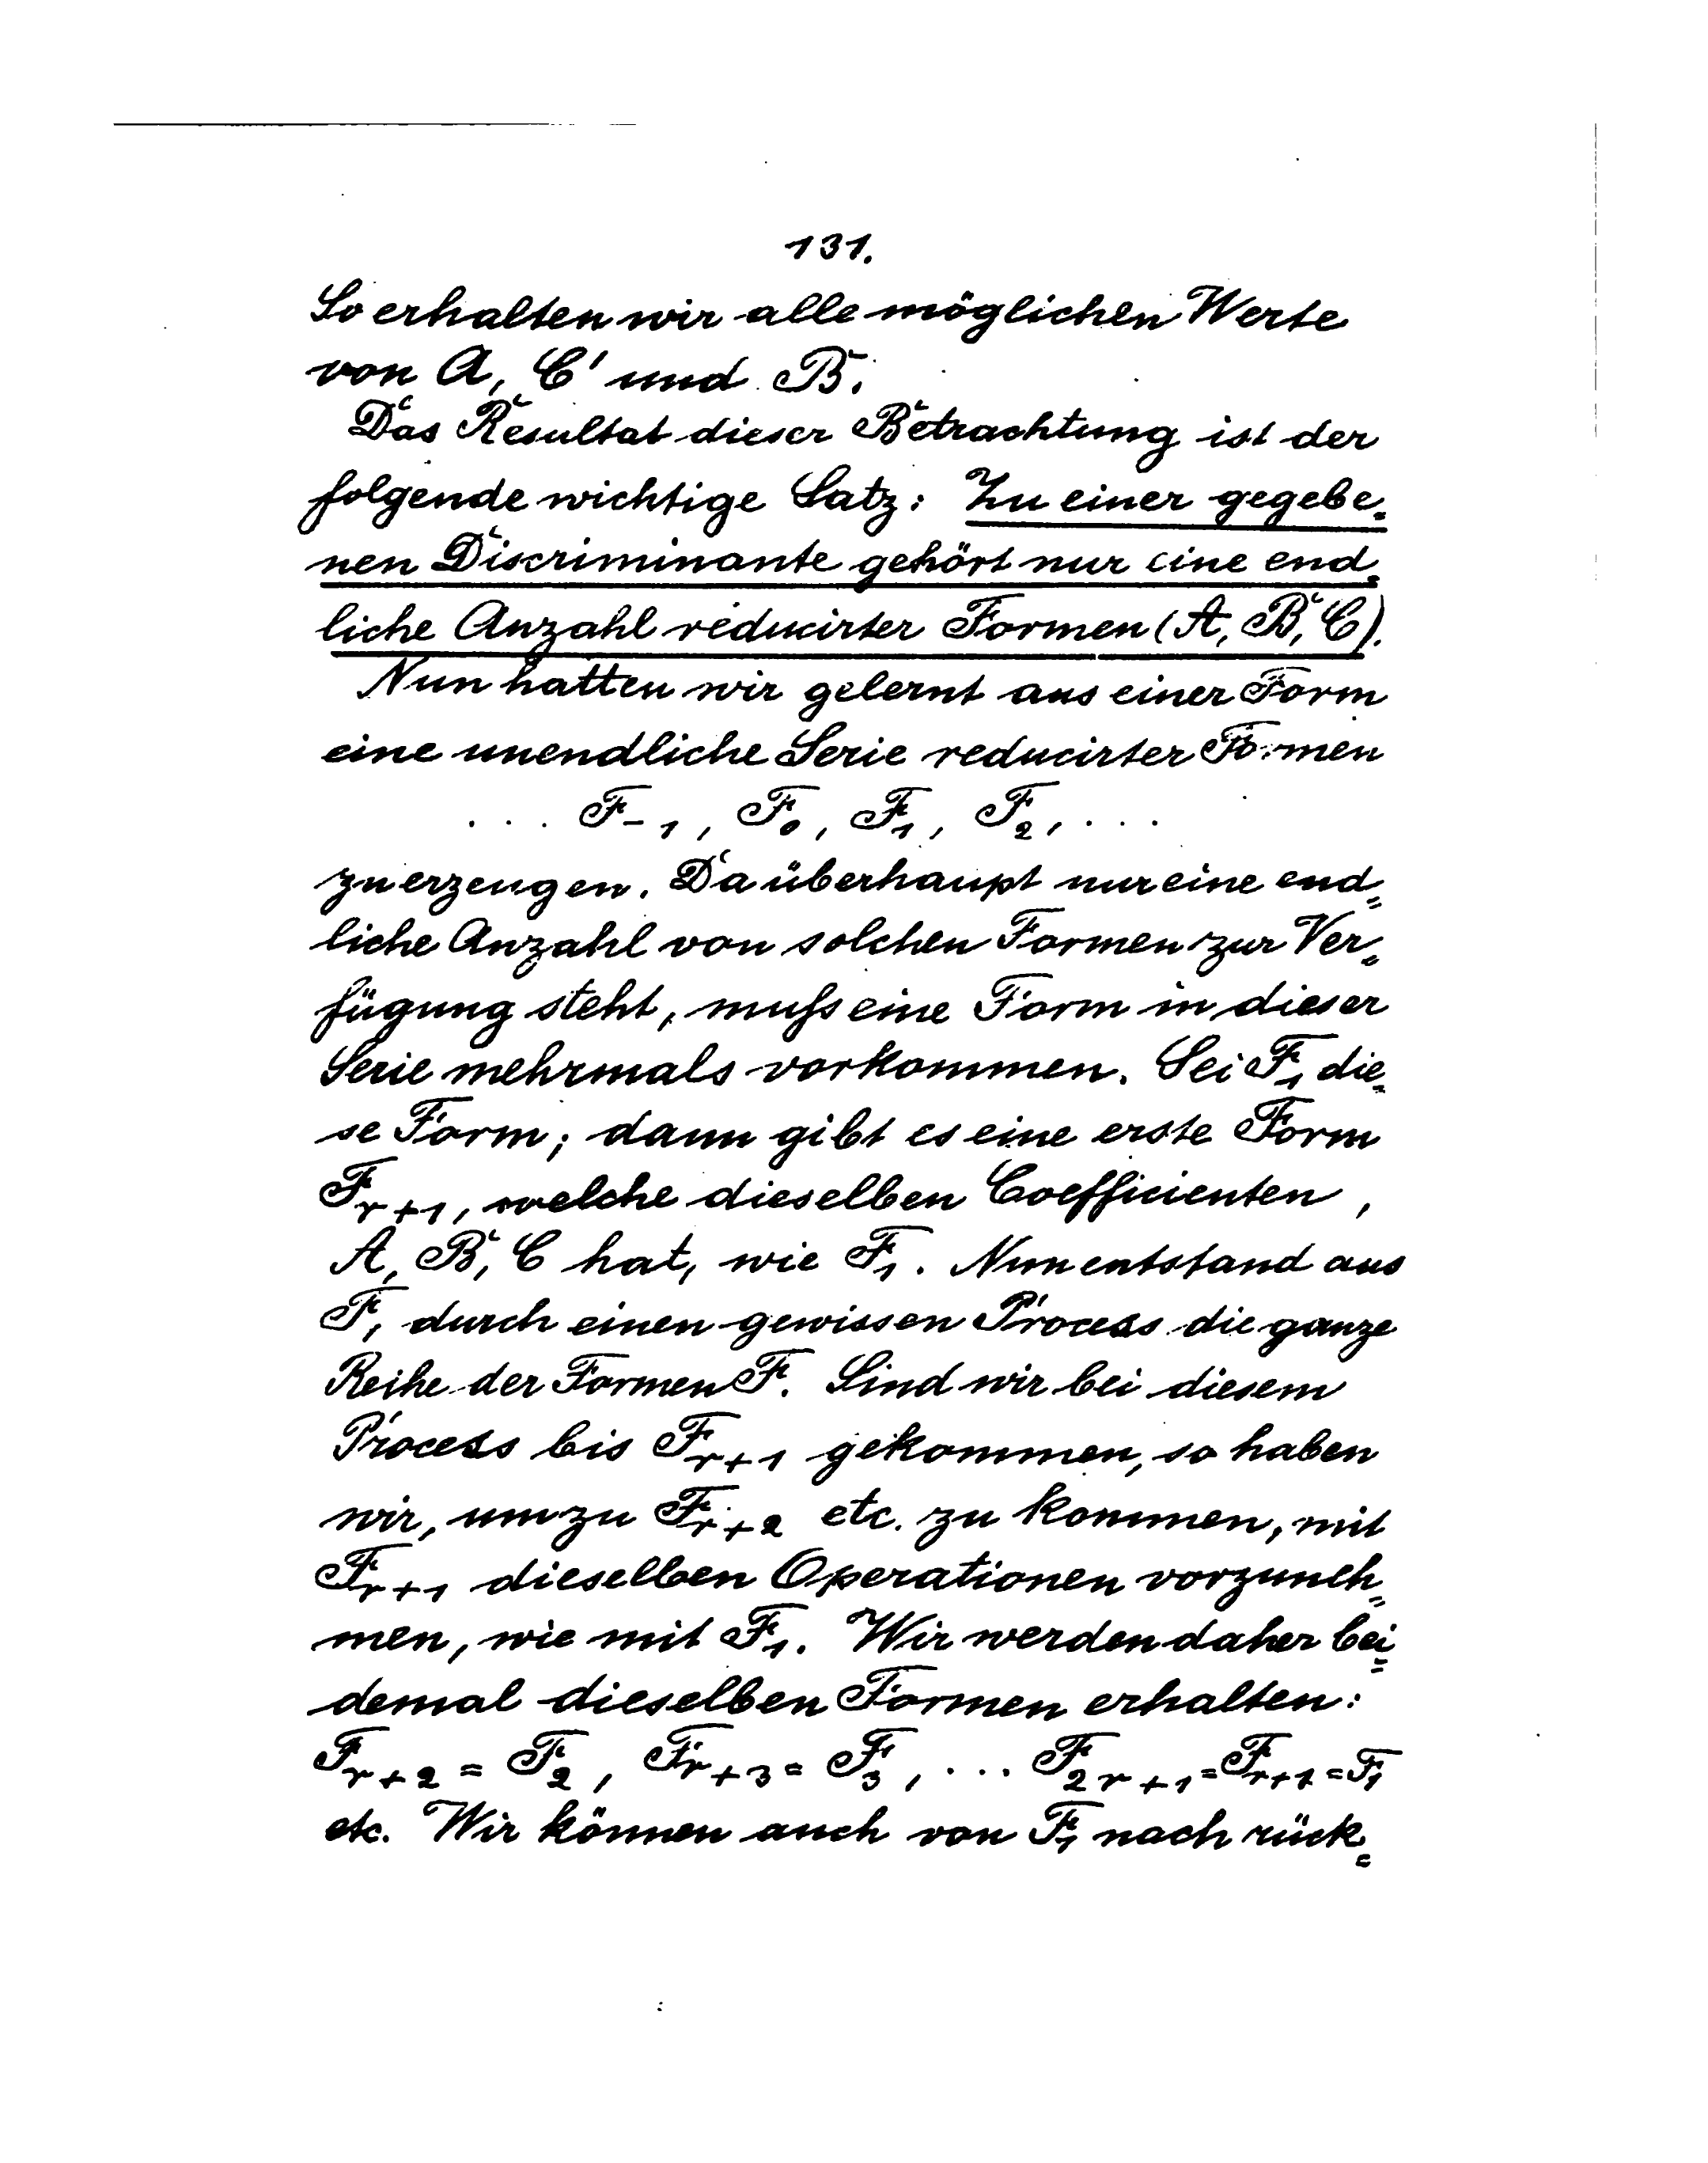 131.
So erhalten wir alle möglichen Werte
von A, C' und B.
Das Resultat dieser Betrachtung ist der
folgende wichtige Satz: Zu einer gegebe=
nen Discriminante gehört nur eine end=
liche Anzahl reducirter Formen (A, B, C).
Nun hatten wir gelernt aus einer Form
eine unendliche Serie reducirter Formen
... F_{-1}, F_0, F_1, F_2, ...
zu erzeugen. Da überhaupt nur eine end=
liche Anzahl von solchen Formen zur Ver=
fügung steht, muſs eine Form in dieser
Serie mehrmals vorkommen. Sei F_1 die=
se Form; dann gibt es eine erste Form
F_{r+1}, welche dieselben Coefficienten,
A, B, C hat, wie F_1. Nun entstand aus
F_1 durch einen gewissen Process die ganze
Reihe der Formen F. Sind wir bei diesem
Process bis F_{r+1} gekommen, so haben
wir, um zu F_{r+2} etc. zu kommen, mit
F_{r+1} dieselben Operationen vorzuneh=
men, wie mit F_1. Wir werden daher bei=
demal dieselben Formen erhalten:
F_{r+2} = F_2, F_{r+3} = F_3, ... F_{2r+1} = F_{r+1} = F_1
etc. Wir können auch von F_1 nach rück=